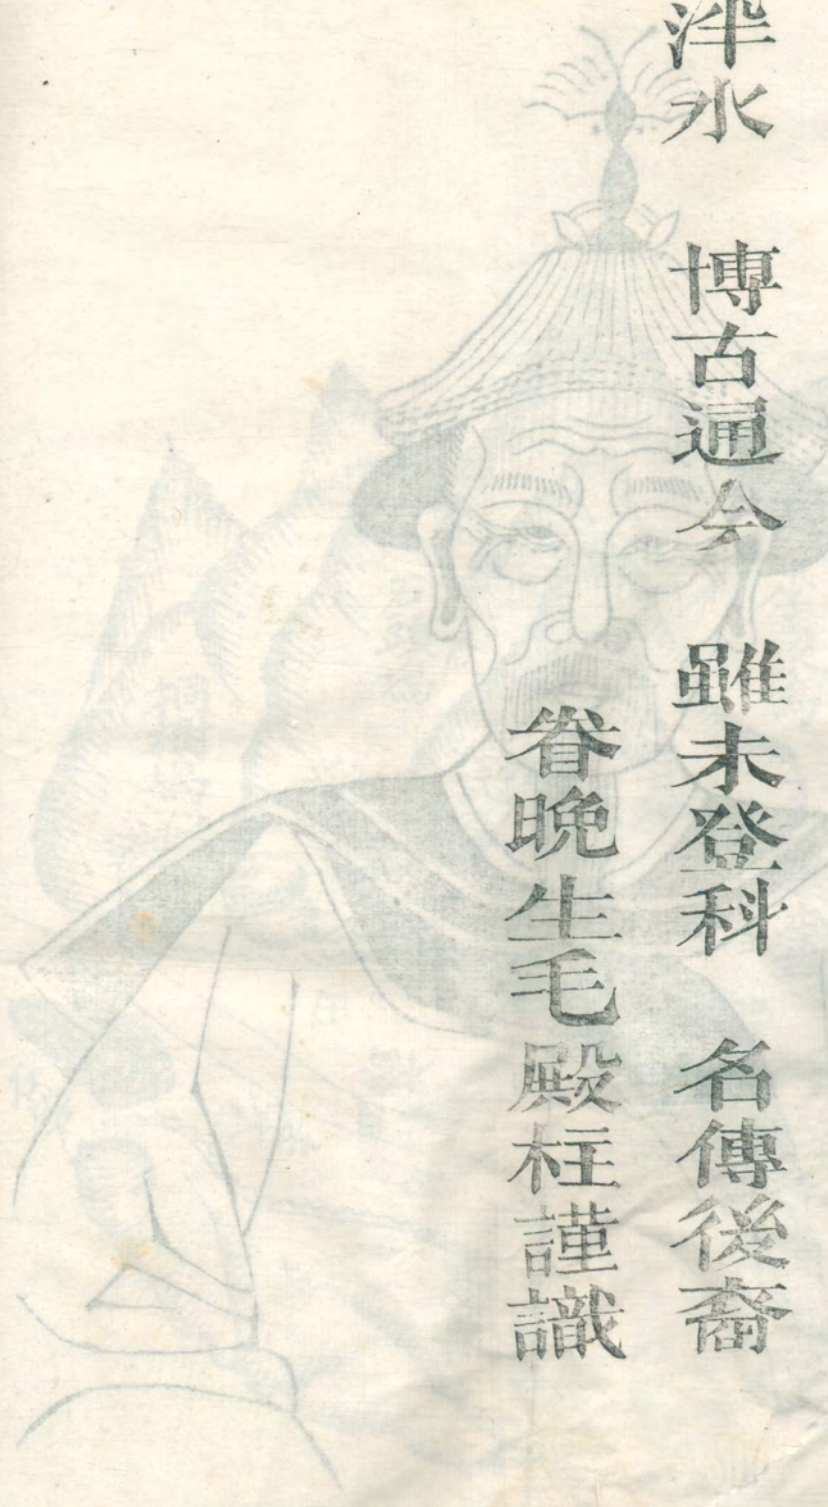 泮水 博古通今 雖未登科 名傳後裔
眷晩生毛殿柱謹識